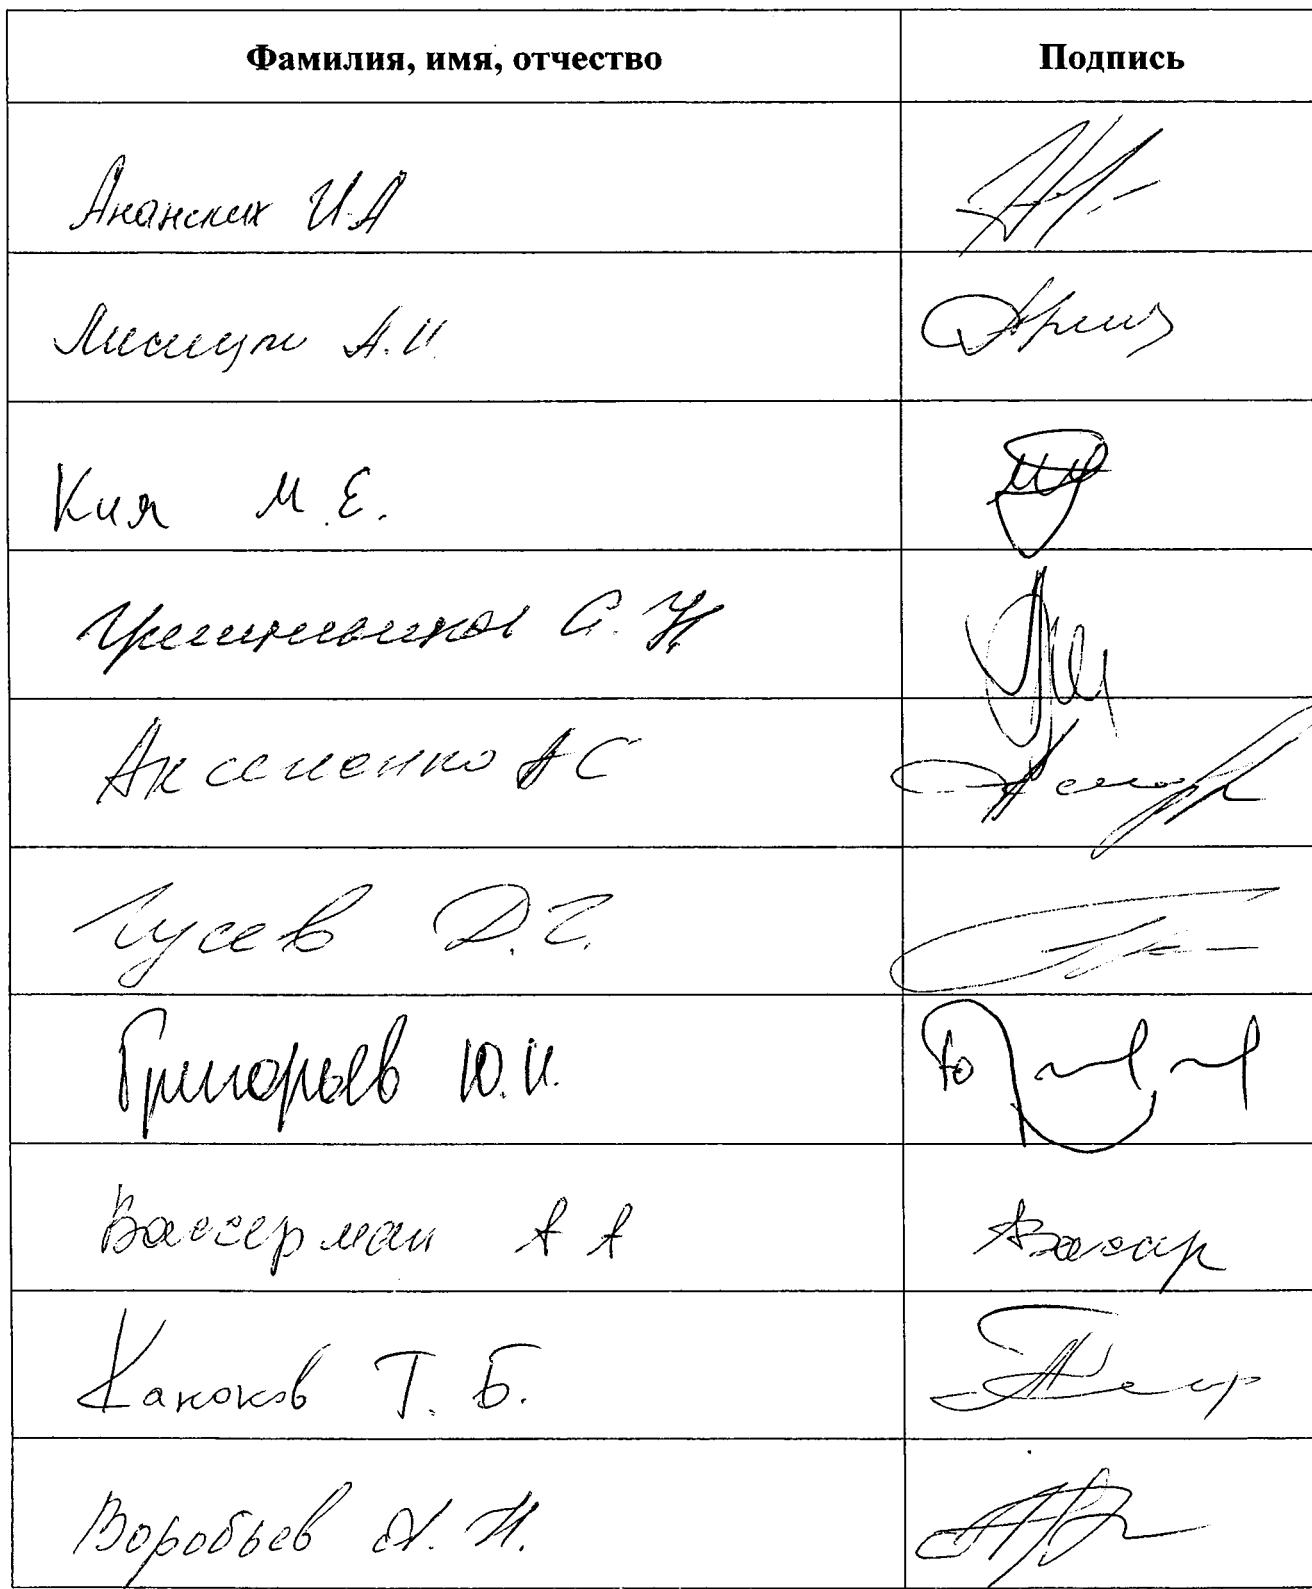 Фамилия, имя, отчество Подпись
Ананских И.А
Лисицын А.И.
Кия М.Е.
С.Н
Аксененко АС
Гусев Д.Г.
Григорьев Ю.И.
Вассерман А А
Каноков Т.Б.
Воробьев А.Н.